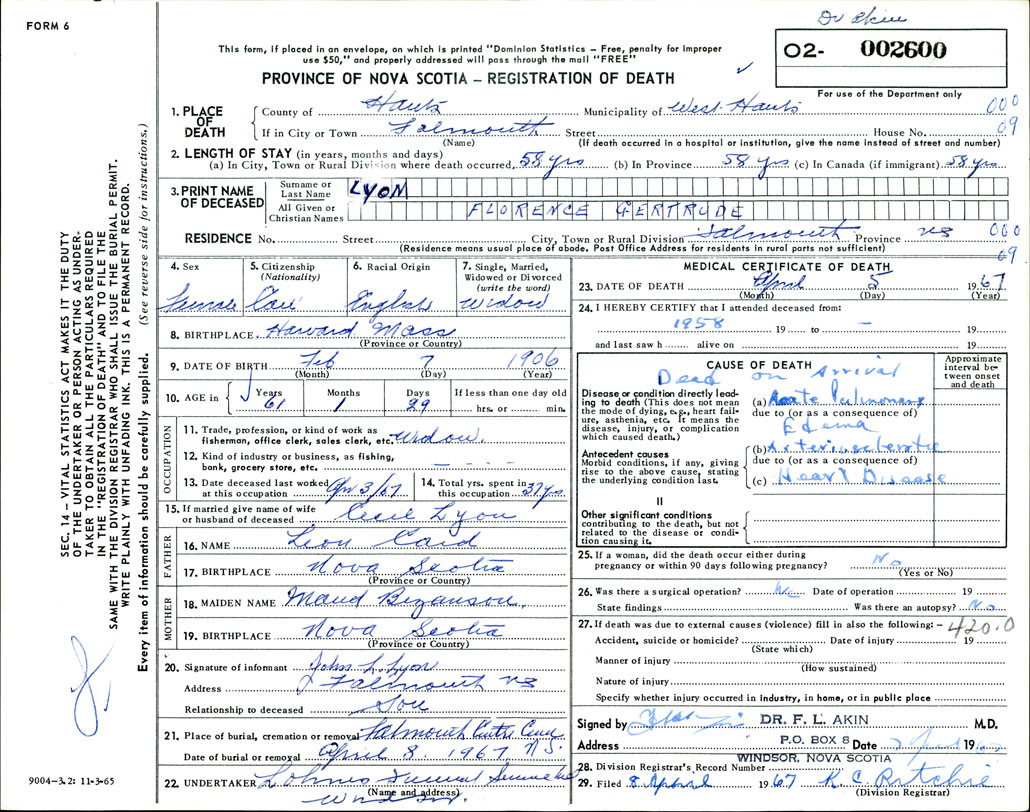 Dr Akin
FORM 6
02- 002600
This form, if placed in an envelope, on which is printed "Dominion Statistics – Free, penalty for improper
use $50," and properly addressed will pass through the mail "FREE"
PROVINCE OF NOVA SCOTIA – REGISTRATION OF DEATH
For use of the Department only
1. PLACE OF DEATH
County of Hants Municipality of West Hants 000
If in City or Town Falmouth Street House No. 09
(Name) (If death occurred in a hospital or institution, give the name instead of street and number)
2. LENGTH OF STAY (in years, months and days)
(a) In City, Town or Rural Division where death occurred, 58 yrs (b) In Province 58 yrs (c) In Canada (if immigrant) 58 yrs
3. PRINT NAME OF DECEASED
Surname or Last Name LYON
All Given or Christian Names FLORENCE GERTRUDE
RESIDENCE No. Street City, Town or Rural Division Falmouth Province NS 000
(Residence means usual place of abode. Post Office Address for residents in rural parts not sufficient) 09
4. Sex 5. Citizenship (Nationality) 6. Racial Origin 7. Single, Married, Widowed or Divorced (write the word)
Female Can English Widow
8. BIRTHPLACE Harvard Mass
(Province or Country)
9. DATE OF BIRTH Feb 7 1906
(Month) (Day) (Year)
10. AGE in Years Months Days If less than one day old
61 1 29 hrs. or min.
OCCUPATION
11. Trade, profession, or kind of work as
fisherman, office clerk, sales clerk, etc. Widow.
12. Kind of industry or business, as fishing,
bank, grocery store, etc. – – – –
13. Date deceased last worked at this occupation Apr 3/67
14. Total yrs. spent in this occupation 37 yrs
15. If married give name of wife
or husband of deceased Cecil Lyon
FATHER
16. NAME Leon Card
17. BIRTHPLACE Nova Scotia
(Province or Country)
MOTHER
18. MAIDEN NAME Maud Bezanson.
19. BIRTHPLACE Nova Scotia
(Province or Country)
20. Signature of informant John L. Lyon
Address Falmouth NS
Relationship to deceased Son
21. Place of burial, cremation or removal Falmouth Centre Cem N.S.
Date of burial or removal April 8, 1967
22. UNDERTAKER Lohnes Funeral
(Name and address)
Windsor.
MEDICAL CERTIFICATE OF DEATH
23. DATE OF DEATH April 5 1967
(Month) (Day) (Year)
24. I HEREBY CERTIFY that I attended deceased from:
1958 19 to – 19
and last saw h alive on 19
CAUSE OF DEATH
Approximate interval between onset and death
Dead on Arrival
Disease or condition directly leading to death (This does not mean the mode of dying, e.g., heart failure, asthenia, etc. It means the disease, injury, or complication which caused death.)
(a) Acute Pulmonary
due to (or as a consequence of)
Edema
Antecedent causes
Morbid conditions, if any, giving rise to the above cause, stating the underlying condition last.
(b) Arteriosclerotic
due to (or as a consequence of)
(c) Heart Disease
II
Other significant conditions
contributing to the death, but not related to the disease or condition causing it.
25. If a woman, did the death occur either during
pregnancy or within 90 days following pregnancy? No
(Yes or No)
26. Was there a surgical operation? No Date of operation 19
State findings Was there an autopsy? No
27. If death was due to external causes (violence) fill in also the following: – 420.0
Accident, suicide or homicide? Date of injury 19
(State which)
Manner of injury
(How sustained)
Nature of injury
Specify whether injury occurred in industry, in home, or in public place
Signed by DR. F. L. AKIN M.D.
Address P.O. BOX 8 Date 7 April 1967
WINDSOR, NOVA SCOTIA
28. Division Registrar's Record Number
29. Filed 8 April 1967 R C Ritchie
(Division Registrar)
SEC. 14 – VITAL STATISTICS ACT MAKES IT THE DUTY
OF THE UNDERTAKER OR PERSON ACTING AS UNDER-
TAKER TO OBTAIN ALL THE PARTICULARS REQUIRED
IN THE "REGISTRATION OF DEATH" AND TO FILE THE
SAME WITH THE DIVISION REGISTRAR WHO SHALL ISSUE THE BURIAL PERMIT.
WRITE PLAINLY WITH UNFADING INK. THIS IS A PERMANENT RECORD.
Every item of information should be carefully supplied. (See reverse side for instructions.)
9004–3.2: 11-3-65